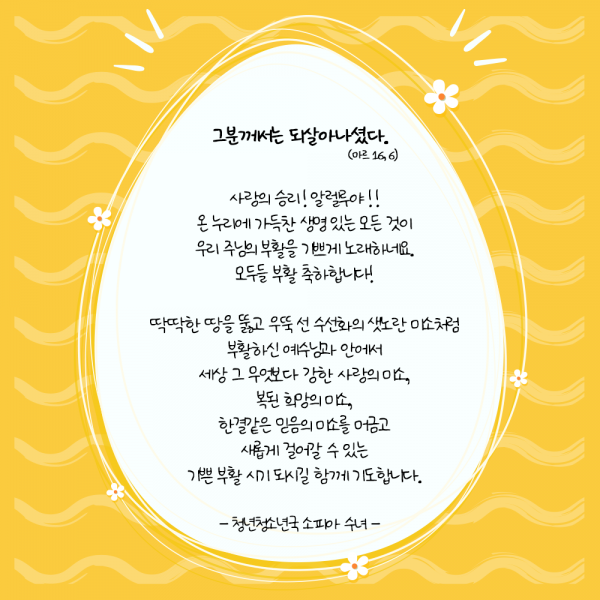 그분께서는 되살아나셨다.
(마르 16,6)
사랑의 승리! 알렐루야!!
온 누리에 가득찬 생명 있는 모든 것이
우리 주님의 부활을 기쁘게 노래하네요.
모두들 부활 축하합니다!
딱딱한 땅을 뚫고 우뚝 선 수선화의 샛노란 미소처럼
부활하신 예수님과 안에서
세상 그 무엇보다 강한 사랑의 미소,
복된 희망의 미소,
한결같은 믿음의 미소를 머금고
새롭게 걸어갈 수 있는
기쁜 부활 시기 되시길 함께 기도합니다.
- 청년청소년국 소피아 수녀 -